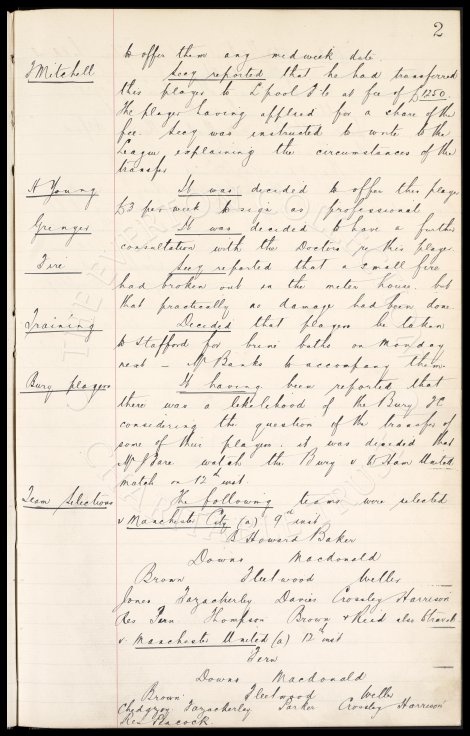 2
to offer them any mid week date.
J Mitchell Secy reported that he had transferred
this player to L'pool F C at fee of £1250.
The player having applied for a share of the
fee. Secy was instructed to write to the
League explaining the circumstances of the
transfer
A Young It was decided to offer this player
£3 per week to sign as professional
Grenyer It was decided to have a further
consultation with the Doctors re this player.
Fire Secy reported that a small fire
had broken out in the meter house. but
that practically no damage had been done.
Training Decided that players be taken
to Stafford for brine baths on Monday
next — Mr Banks to accompany them
Bury players It having been reported that
there was a likelihood of the Bury F C
considering the question of the transfer of
some of their players. it was decided that
Mr Bare watch the Bury v W Ham United
match on 12th inst.
Team Selections The following teams were selected
v Manchester City (a) 9th inst
B Howard Baker
Downs Macdonald
Brown Fleetwood Weller
Jones Fazackerley Davies Crossley Harrison
Res Fern. Thompson Brown & Reid also
v. Manchester United (a) 12th inst
Fern
Downs Macdonald
Brown Fleetwood Weller
Chedgzoy Fazackerley Parker Crossley Harrison
Res Peacock.